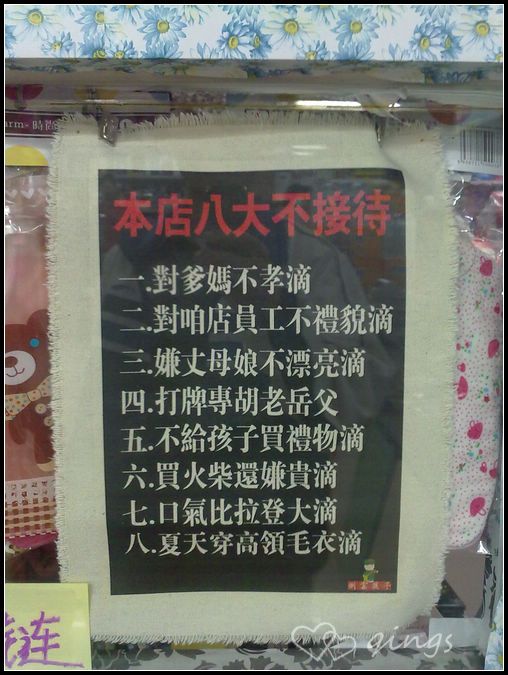 本店八大不接待
一.對爹媽不孝滴
二.對咱店員工不禮貌滴
三.嫌丈母娘不漂亮滴
四.打牌專胡老岳父
五.不給孩子買禮物滴
六.買火柴還嫌貴滴
七.口氣比拉登大滴
八.夏天穿高領毛衣滴
连
qings